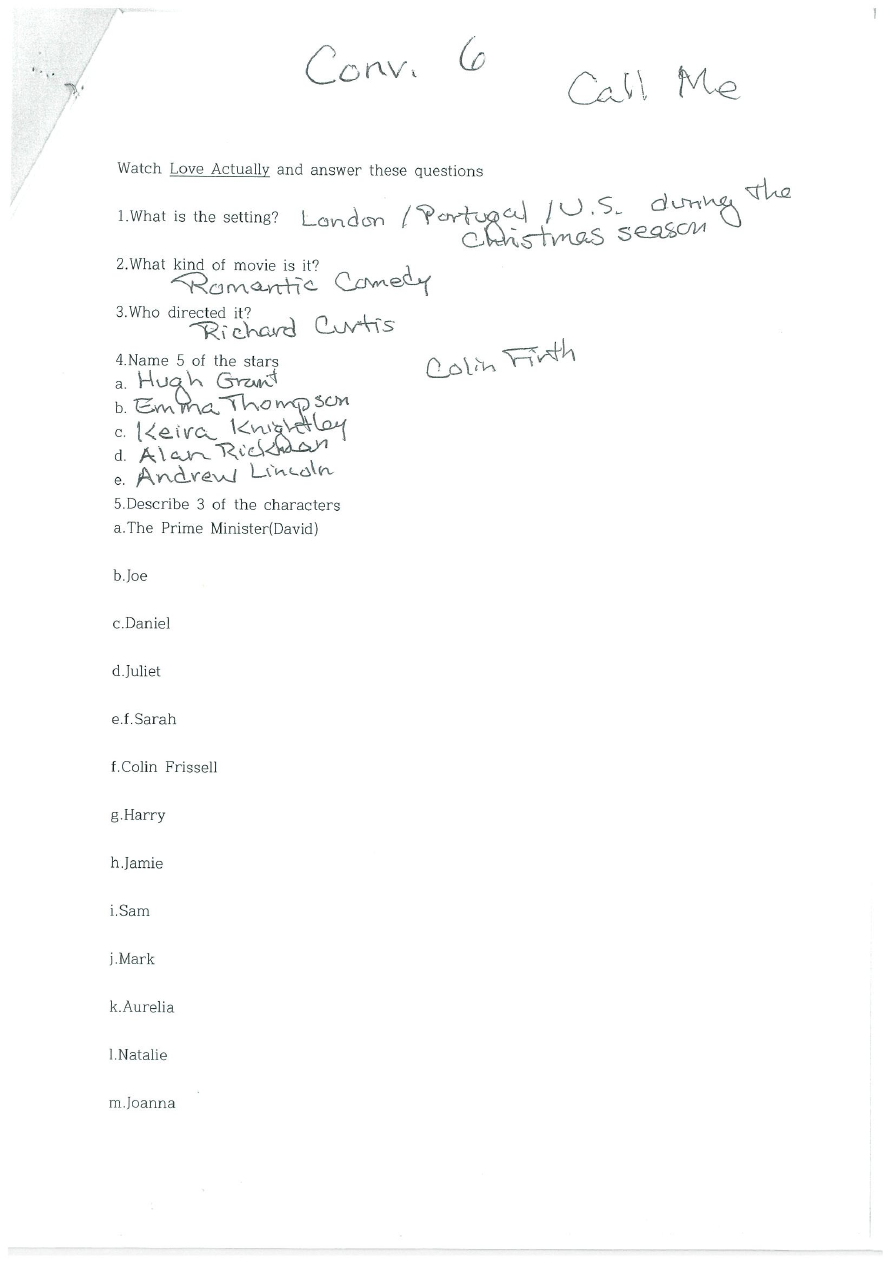 Conv. 6
Call Me
Watch Love Actually and answer these questions
1.What is the setting? London / Portugal / U.S. during the
Christmas season
2.What kind of movie is it?
Romantic Comedy
3.Who directed it?
Richard Curtis
4.Name 5 of the stars
Colin Firth
a. Hugh Grant
b. Emma Thompson
c. Keira Knightley
d. Alan Rickman
e. Andrew Lincoln
5.Describe 3 of the characters
a.The Prime Minister(David)
b.Joe
c.Daniel
d.Juliet
e.f.Sarah
f.Colin Frissell
g.Harry
h.Jamie
i.Sam
j.Mark
k.Aurelia
l.Natalie
m.Joanna